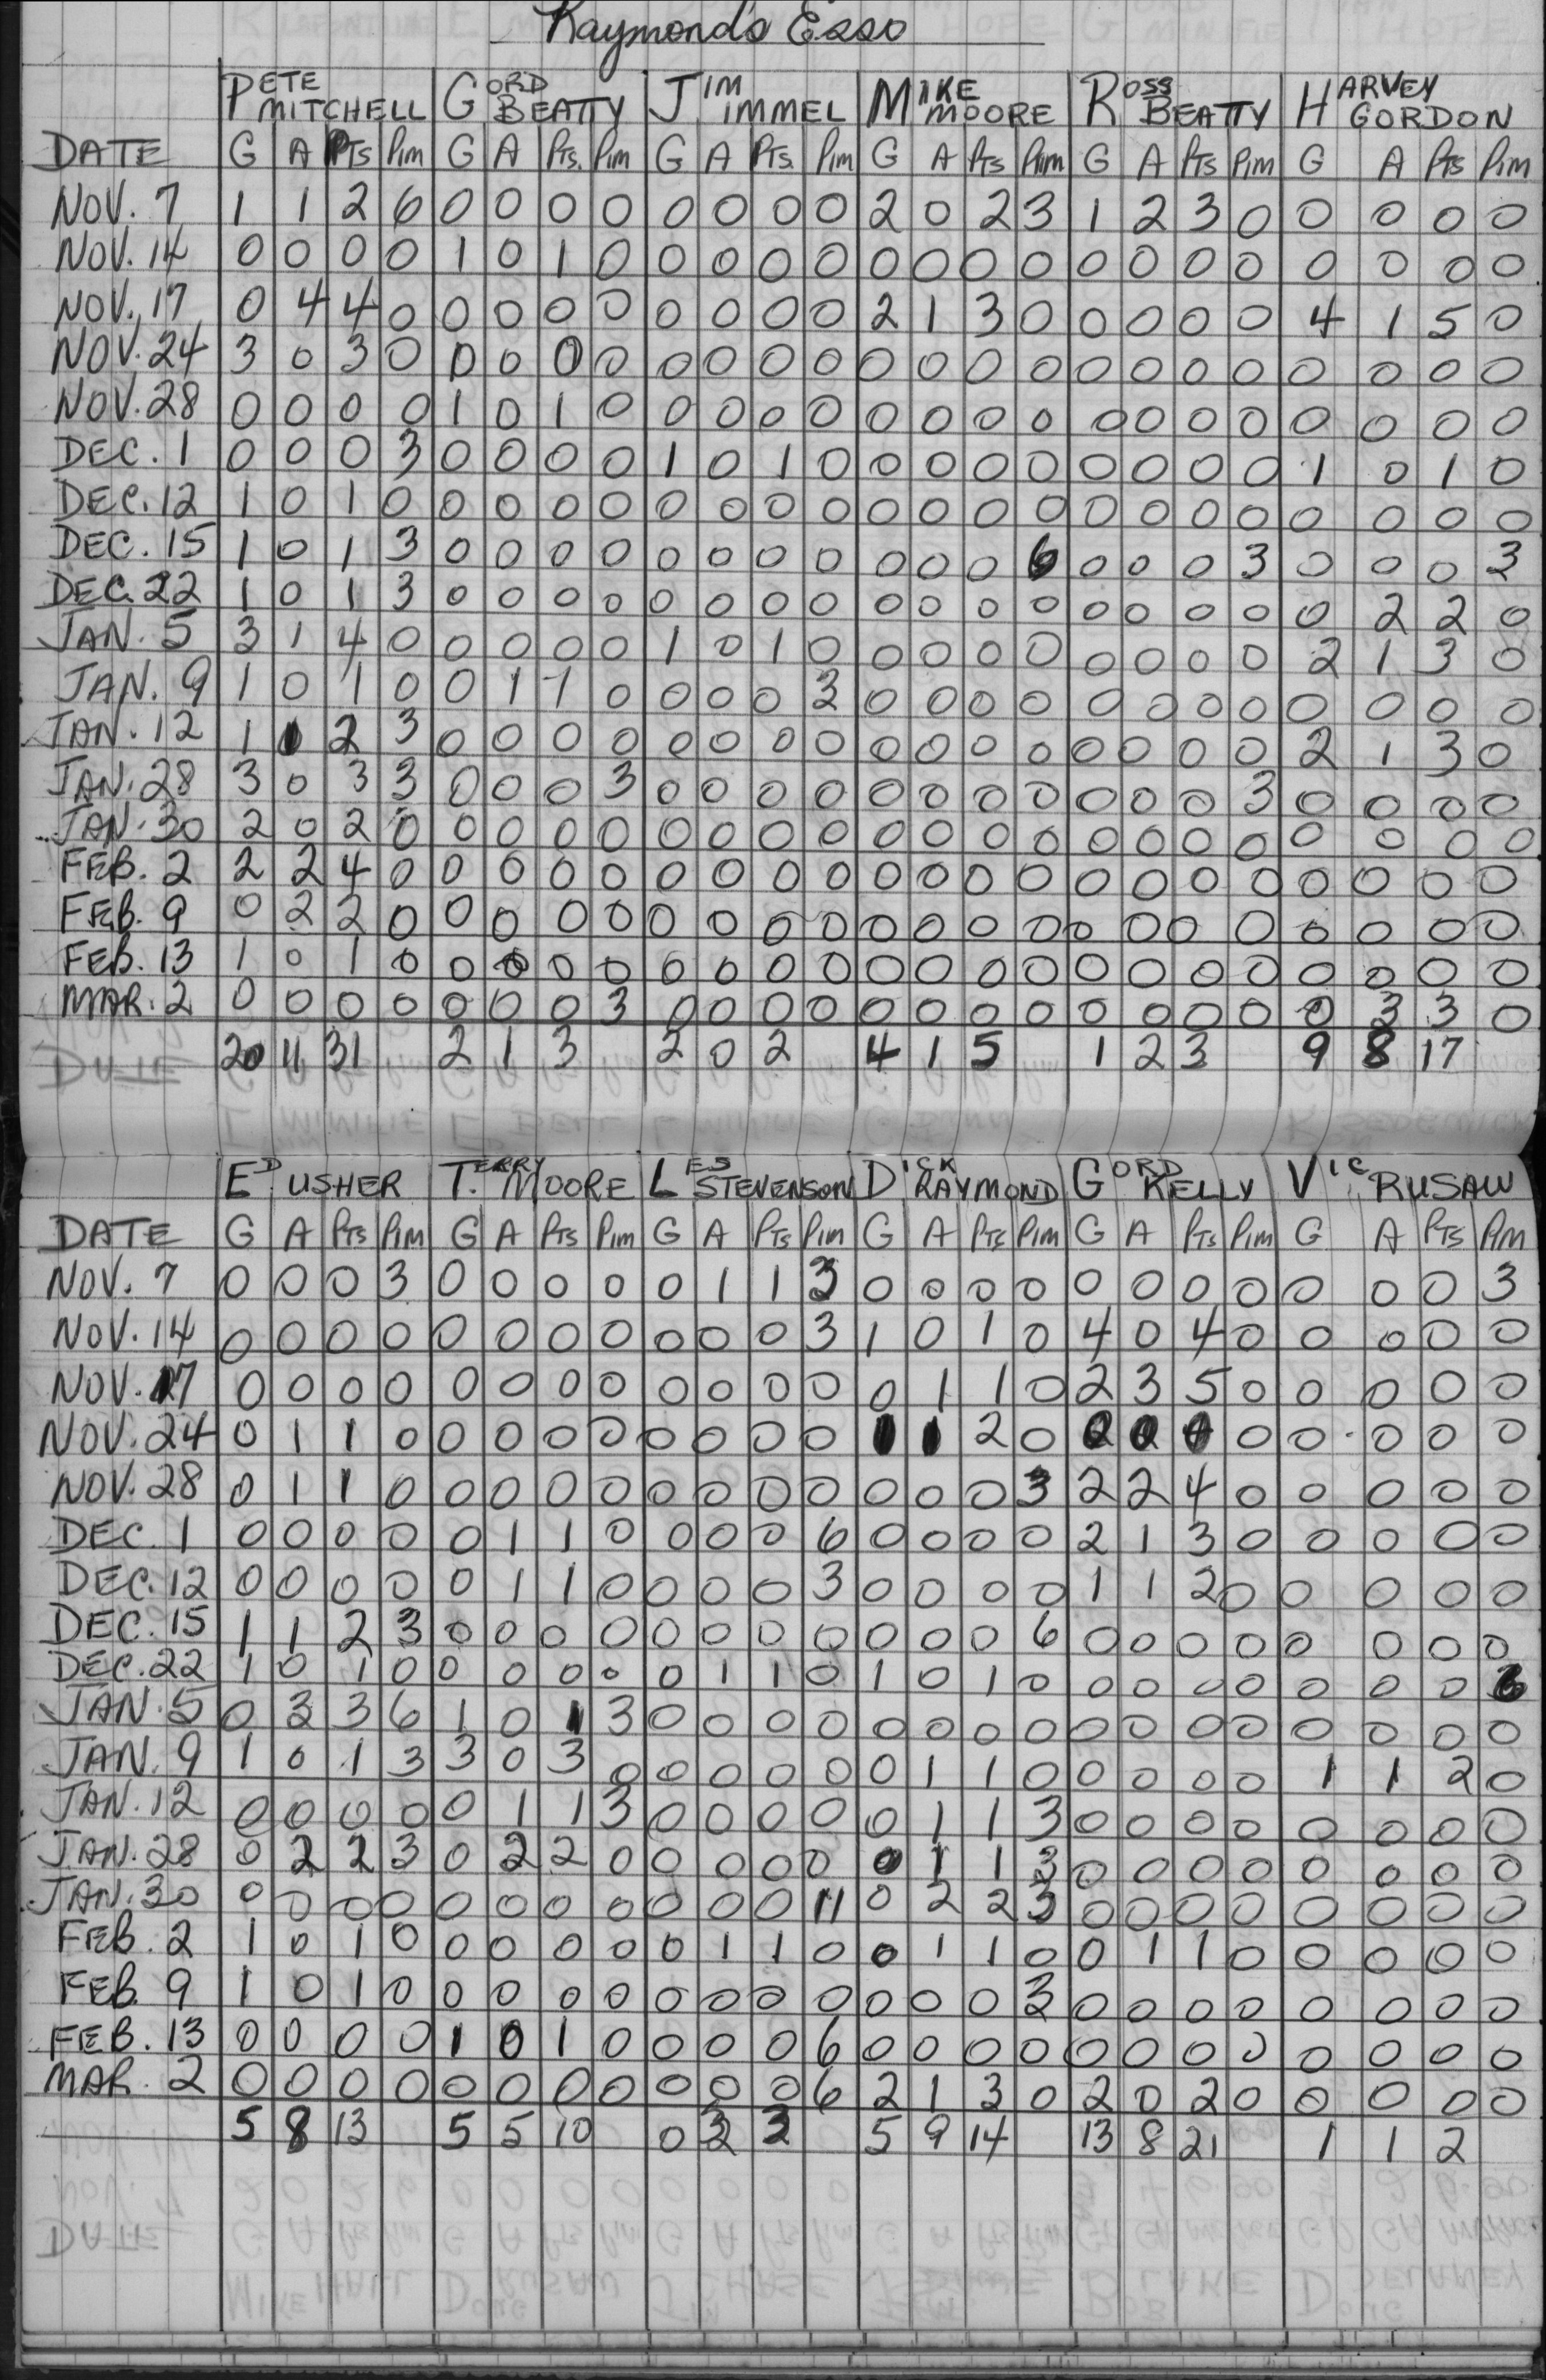 Raymond's Esso
PETE MITCHELL GORD BEATTY JIM IMMEL MIKE MOORE ROSS BEATTY HARVEY GORDON
DATE G A PTS PIM G A PTS. PIM G A PTS. PIM G A PTS PIM G A PTS PIM G A PTS PIM
NOV. 7 1 1 2 6 0 0 0 0 0 0 0 0 2 0 2 3 1 2 3 0 0 0 0 0
NOV. 14 0 0 0 0 1 0 1 0 0 0 0 0 0 0 0 0 0 0 0 0 0 0 0 0
NOV. 17 0 4 4 0 0 0 0 0 0 0 0 0 2 1 3 0 0 0 0 0 4 1 5 0
NOV. 24 3 0 3 0 0 0 0 0 0 0 0 0 0 0 0 0 0 0 0 0 0 0 0 0
NOV. 28 0 0 0 0 1 0 1 0 0 0 0 0 0 0 0 0 0 0 0 0 0 0 0 0
DEC. 1 0 0 0 3 0 0 0 0 1 0 1 0 0 0 0 0 0 0 0 0 1 0 1 0
DEC. 12 1 0 1 0 0 0 0 0 0 0 0 0 0 0 0 0 0 0 0 0 0 0 0 0
DEC. 15 1 0 1 3 0 0 0 0 0 0 0 0 0 0 0 6 0 0 0 3 0 0 0 3
DEC. 22 1 0 1 3 0 0 0 0 0 0 0 0 0 0 0 0 0 0 0 0 0 2 2 0
JAN. 5 3 1 4 0 0 0 0 0 1 0 1 0 0 0 0 0 0 0 0 0 2 1 3 0
JAN. 9 1 0 1 0 0 1 1 0 0 0 0 3 0 0 0 0 0 0 0 0 0 0 0 0
JAN. 12 1 1 2 3 0 0 0 0 0 0 0 0 0 0 0 0 0 0 0 0 2 1 3 0
JAN. 28 3 0 3 3 0 0 0 3 0 0 0 0 0 0 0 0 0 0 0 3 0 0 0 0
JAN. 30 2 0 2 0 0 0 0 0 0 0 0 0 0 0 0 0 0 0 0 0 0 0 0 0
FEB. 2 2 2 4 0 0 0 0 0 0 0 0 0 0 0 0 0 0 0 0 0 0 0 0 0
FEB. 9 0 2 2 0 0 0 0 0 0 0 0 0 0 0 0 0 0 0 0 0 0 0 0 0
FEB. 13 1 0 1 0 0 0 0 0 0 0 0 0 0 0 0 0 0 0 0 0 0 0 0 0
MAR. 2 0 0 0 0 0 0 0 3 0 0 0 0 0 0 0 0 0 0 0 0 0 3 3 0
20 11 31 2 1 3 2 0 2 4 1 5 1 2 3 9 8 17
ED USHER TERRY MOORE LES STEVENSON DICK RAYMOND GORD KELLY VIC RUSAW
DATE G A PTS PIM G A PTS PIM G A PTS PIM G A PTS PIM G A PTS PIM G A PTS PIM
NOV. 7 0 0 0 3 0 0 0 0 0 1 1 3 0 0 0 0 0 0 0 0 0 0 0 3
NOV. 14 0 0 0 0 0 0 0 0 0 0 0 3 1 0 1 0 4 0 4 0 0 0 0 0
NOV. 17 0 0 0 0 0 0 0 0 0 0 0 0 0 1 1 0 2 3 5 0 0 0 0 0
NOV. 24 0 1 1 0 0 0 0 0 0 0 0 0 1 1 2 0 0 0 0 0 0 0 0 0
NOV. 28 0 1 1 0 0 0 0 0 0 0 0 0 0 0 0 3 2 2 4 0 0 0 0 0
DEC. 1 0 0 0 0 0 1 1 0 0 0 0 6 0 0 0 0 2 1 3 0 0 0 0 0
DEC. 12 0 0 0 0 0 1 1 0 0 0 0 3 0 0 0 0 1 1 2 0 0 0 0 0
DEC. 15 1 1 2 3 0 0 0 0 0 0 0 0 0 0 0 6 0 0 0 0 0 0 0 0
DEC. 22 1 0 1 0 0 0 0 0 0 1 1 0 1 0 1 0 0 0 0 0 0 0 0 3
JAN. 5 0 3 3 6 1 0 1 3 0 0 0 0 0 0 0 0 0 0 0 0 0 0 0 0
JAN. 9 1 0 1 3 3 0 3 0 0 0 0 0 0 1 1 0 0 0 0 0 1 1 2 0
JAN. 12 0 0 0 0 0 1 1 3 0 0 0 0 0 1 1 3 0 0 0 0 0 0 0 0
JAN. 28 0 2 2 3 0 2 2 0 0 0 0 0 0 1 1 3 0 0 0 0 0 0 0 0
JAN. 30 0 0 0 0 0 0 0 0 0 0 0 11 0 2 2 3 0 0 0 0 0 0 0 0
FEB. 2 1 0 1 0 0 0 0 0 0 1 1 0 0 1 1 0 0 1 1 0 0 0 0 0
FEB. 9 1 0 1 0 0 0 0 0 0 0 0 0 0 0 0 3 0 0 0 0 0 0 0 0
FEB. 13 0 0 0 0 1 0 1 0 0 0 0 6 0 0 0 0 0 0 0 0 0 0 0 0
MAR. 2 0 0 0 0 0 0 0 0 0 0 0 6 2 1 3 0 2 0 2 0 0 0 0 0
5 8 13 5 5 10 0 3 3 5 9 14 13 8 21 1 1 2